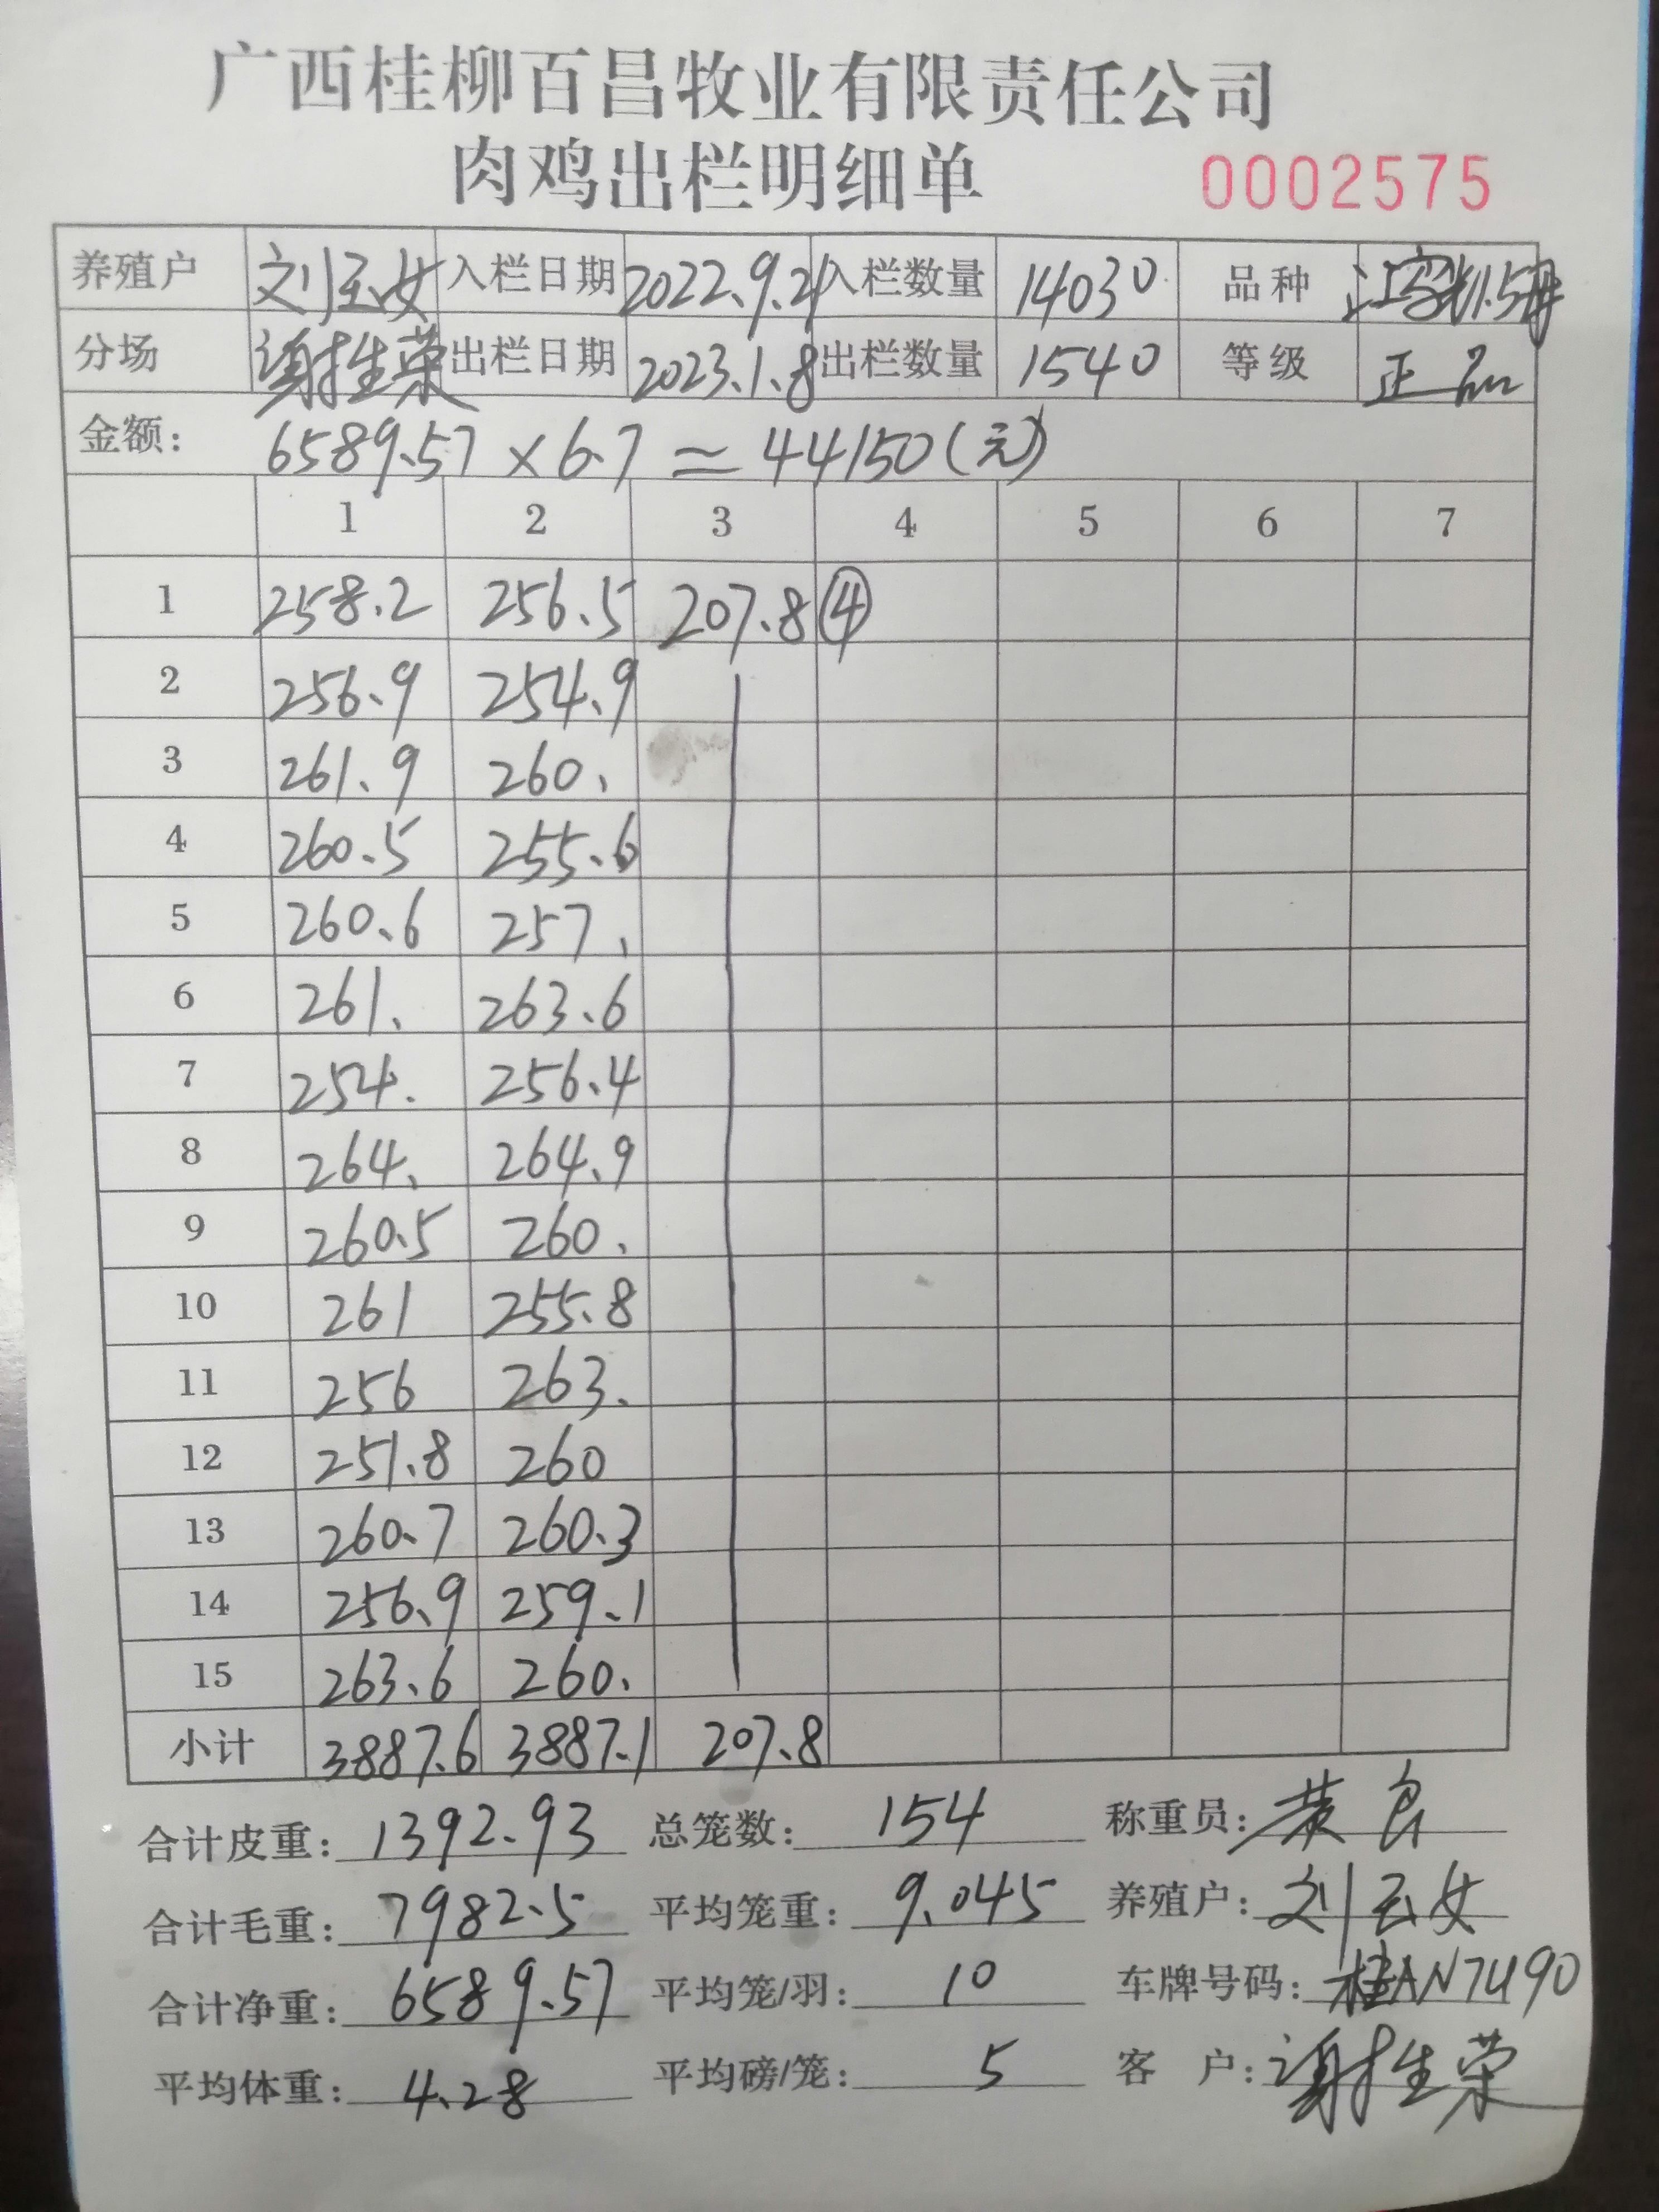 广西桂柳百昌牧业有限责任公司
肉鸡出栏明细单 0002575
养殖户 刘玉女 入栏日期 2022.9.21 入栏数量 14030 品种
分场 谢推生荣 出栏日期 2023.1.8 出栏数量 1540 等级 正品
金额: 6589.57 × 6.7 = 44150(元)
1 2 3 4 5 6 7
1 258.2 256.5 207.8 ④
2 256.9 254.9
3 261.9 260.
4 260.5 255.6
5 260.6 257.
6 261. 263.6
7 254. 256.4
8 264. 264.9
9 260.5 260.
10 261 255.8
11 256 263.
12 251.8 260
13 260.7 260.3
14 256.9 259.1
15 263.6 260.
小计 3887.6 3887.1 207.8
合计皮重: 1392.93 总笼数: 154 称重员:
合计毛重: 7982.5 平均笼重: 9.045 养殖户: 刘玉女
合计净重: 6589.57 平均笼/羽: 10 车牌号码: 桂AN7490
平均体重: 4.28 平均磅/笼: 5 客 户: 谢推生荣